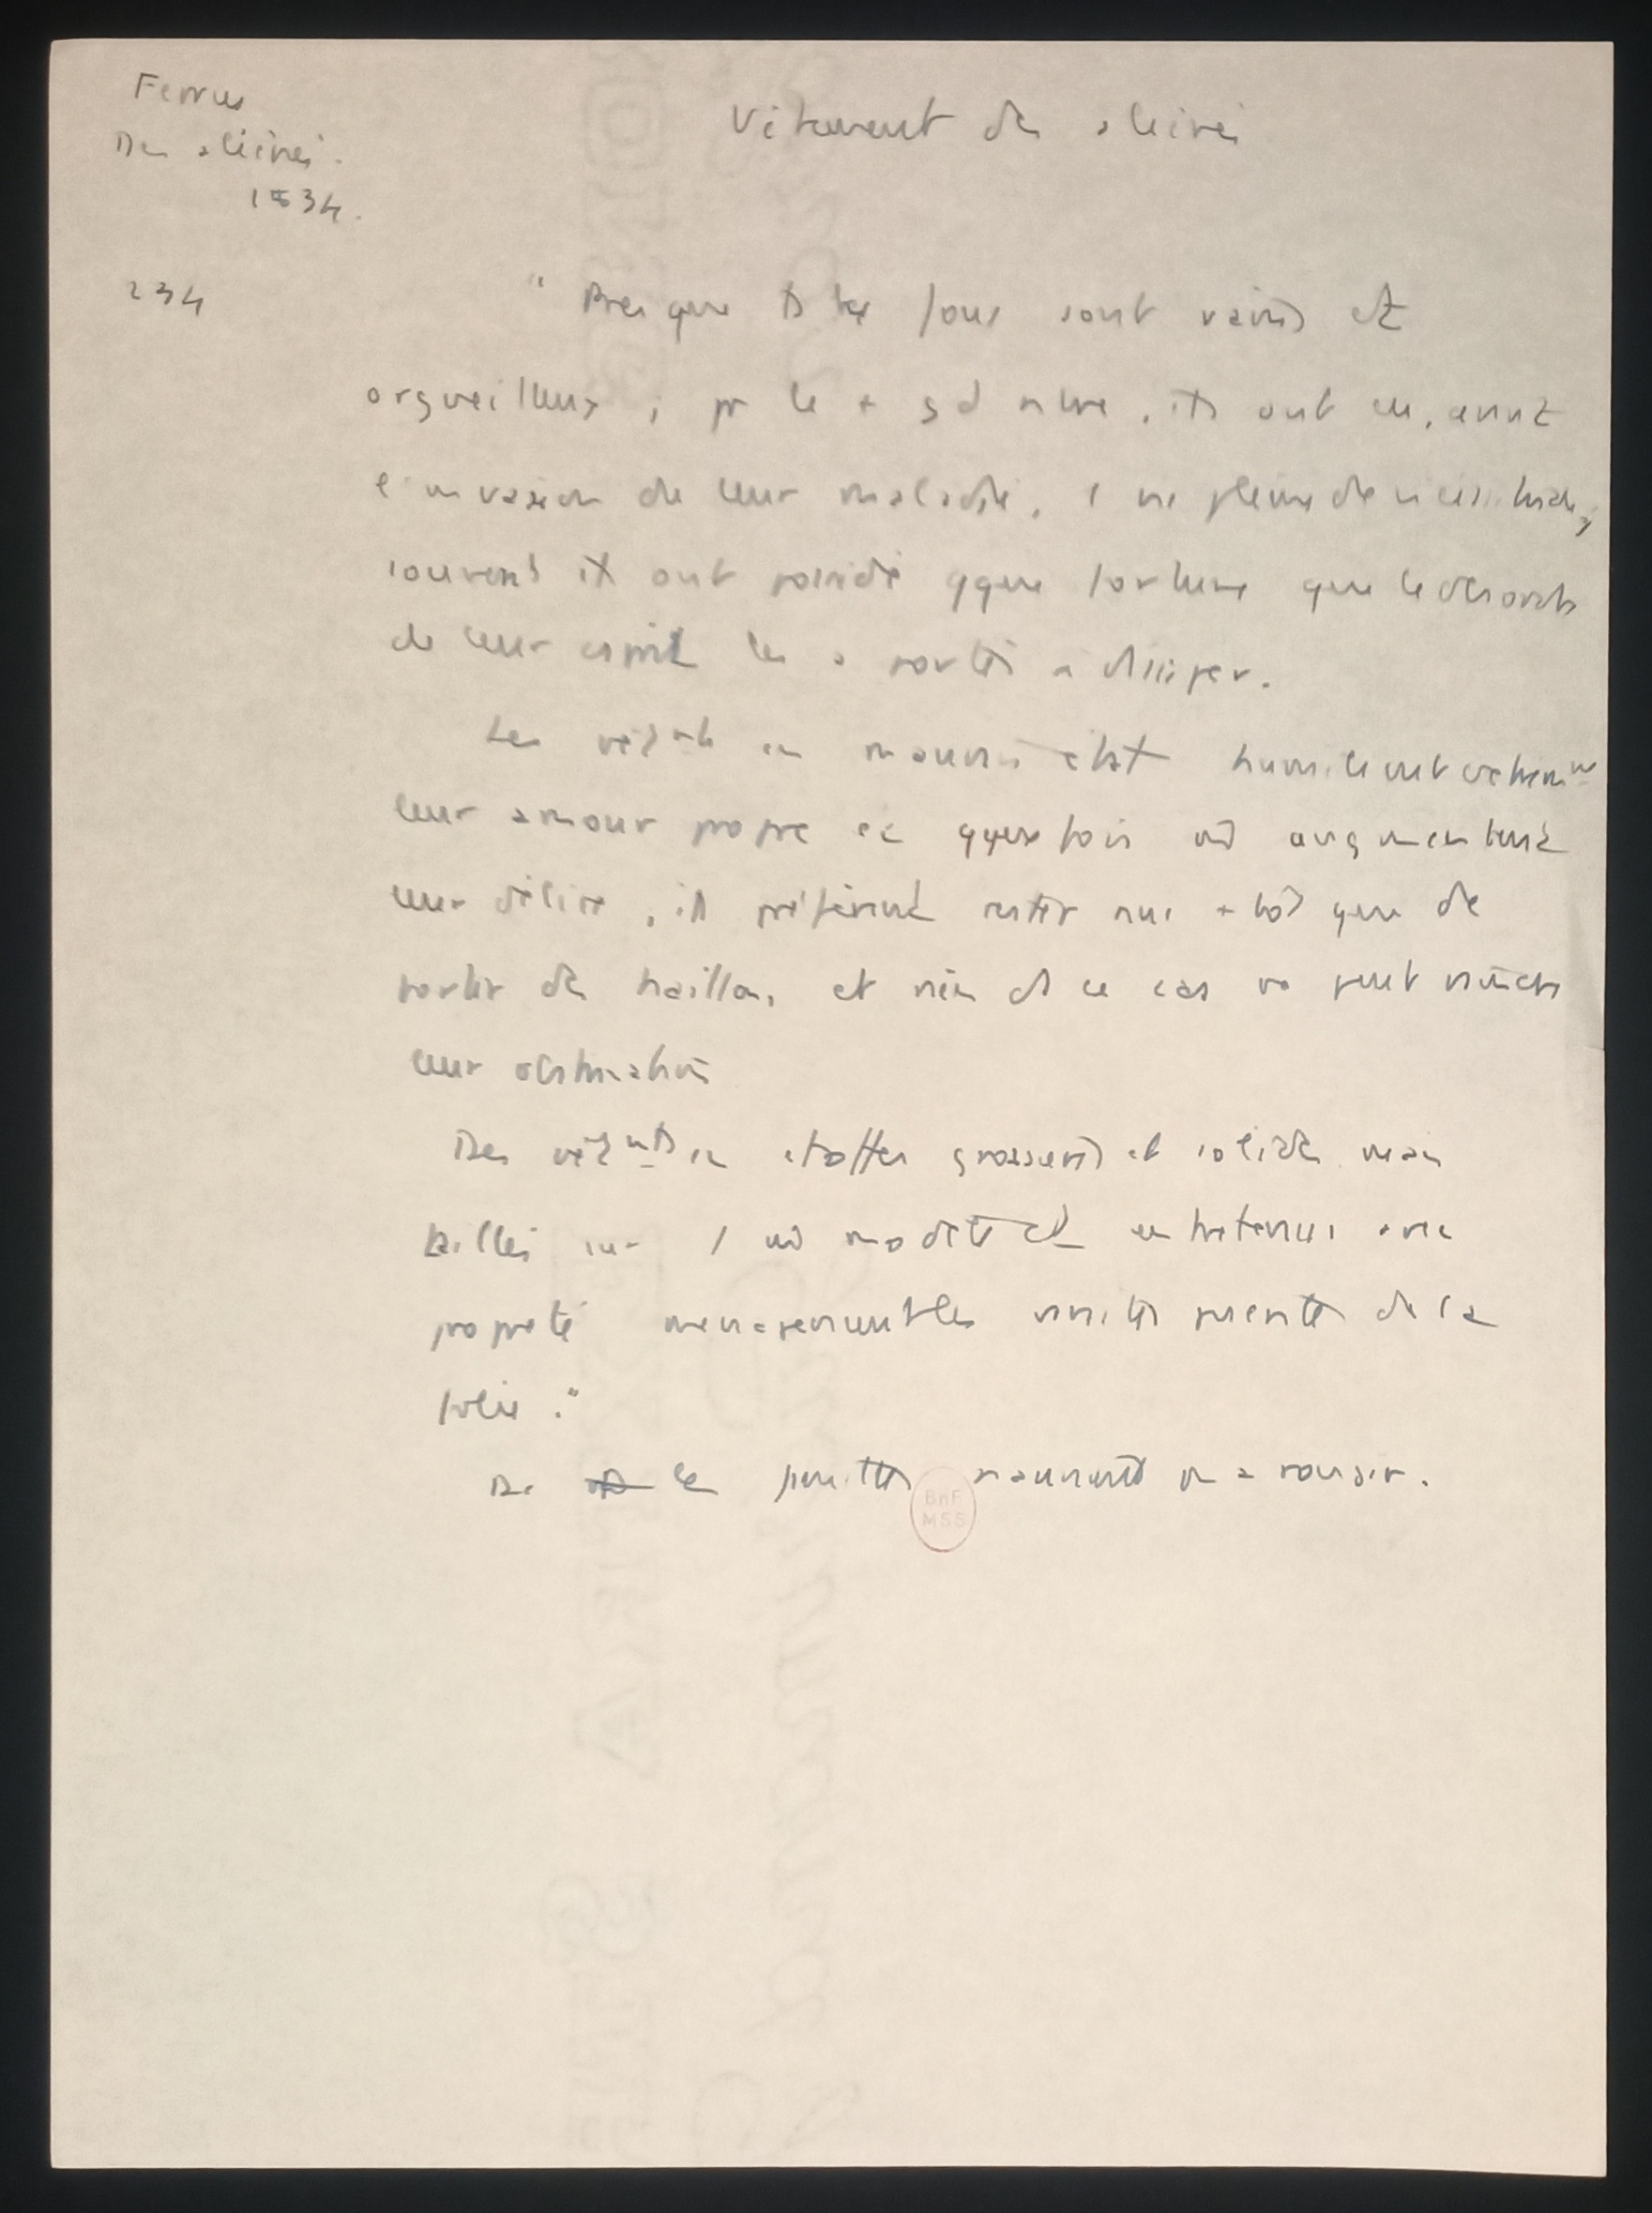 Ferrus
Des aliénés.
1834.
Vêtement des aliénés
234
" Presque ts les fous sont vains et
orgueilleux ; pr le + gd nbre, ils ont eu, avant
l'invasion de leur maladie, 1 vie pleine de vicissitudes ;
souvent ils ont possédé qque fortune que le désordre
de leur esprit les a portés à dissiper.
Les vêtmts en mauvais état humilient
leur amour propre et qquefois augmentent
leur délire, ils préfèrent rester nus + tôt que de
porter des haillons, et rien ds ce cas ne peut vaincre
leur obstination
Des vêtmts en étoffes grossières et solides mais
taillés sur 1 modèle et entretenus avec
propreté
folie."
De les
BnF
MSS